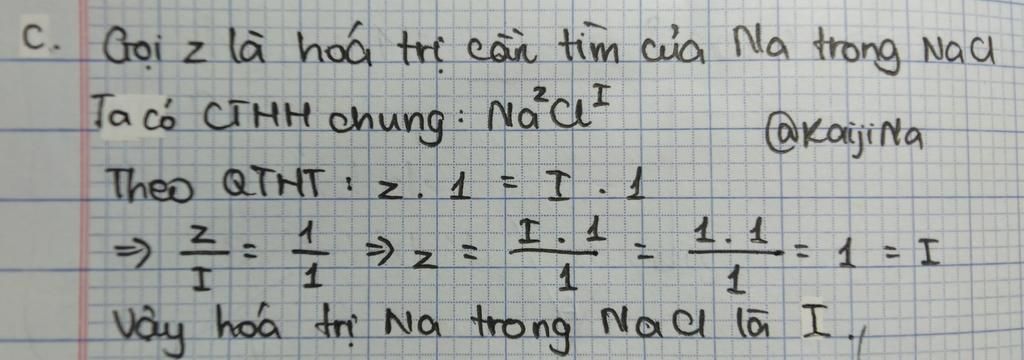 c. Gọi z là hoá trị cần tìm của Na trong NaCl
Ta có CTHH chung: Na^z Cl^I
@KaijiNa
Theo QTHT: z . 1 = I . 1
⇒ z/I = 1/1 ⇒ z = I . 1/1 = 1 . 1/1 = 1 = I
Vậy hoá trị Na trong NaCl là I.